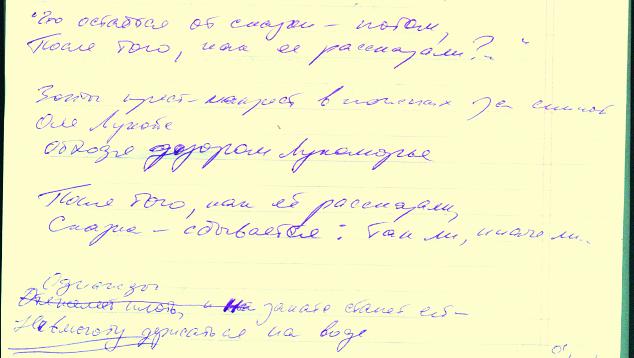 "Что остаётся от сказки – потом,
После того, как её рассказали?.."
Зонты крест-накрест в поисках за спиной
Оле Лукойе
обходя дозором Лукоморье
После того, как её рассказали,
Сказка – сбывается: Так ли, иначе ли...
Однажды
и на закате станет ей –
Невмоготу держаться на воде